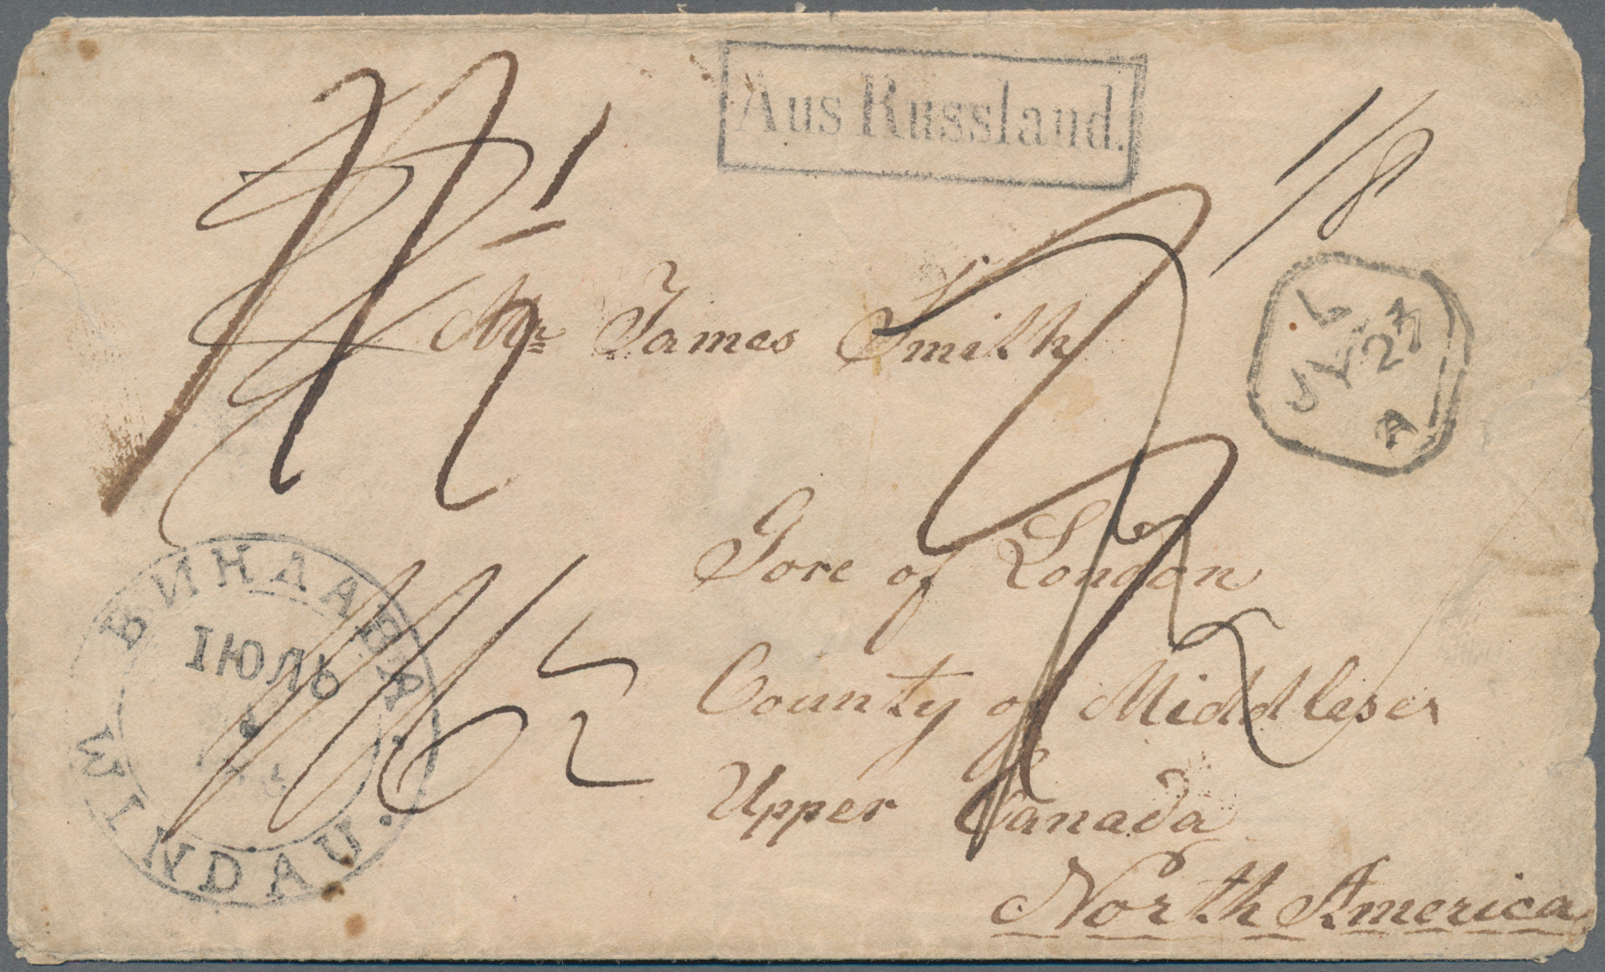 Aus Russland.
1/8
Mr James Smith
L
JY 27
A
Gore of London
County of Middlesex
Upper Canada
North America
ВИНДАВА.
ІЮЛЬ
WINDAU.